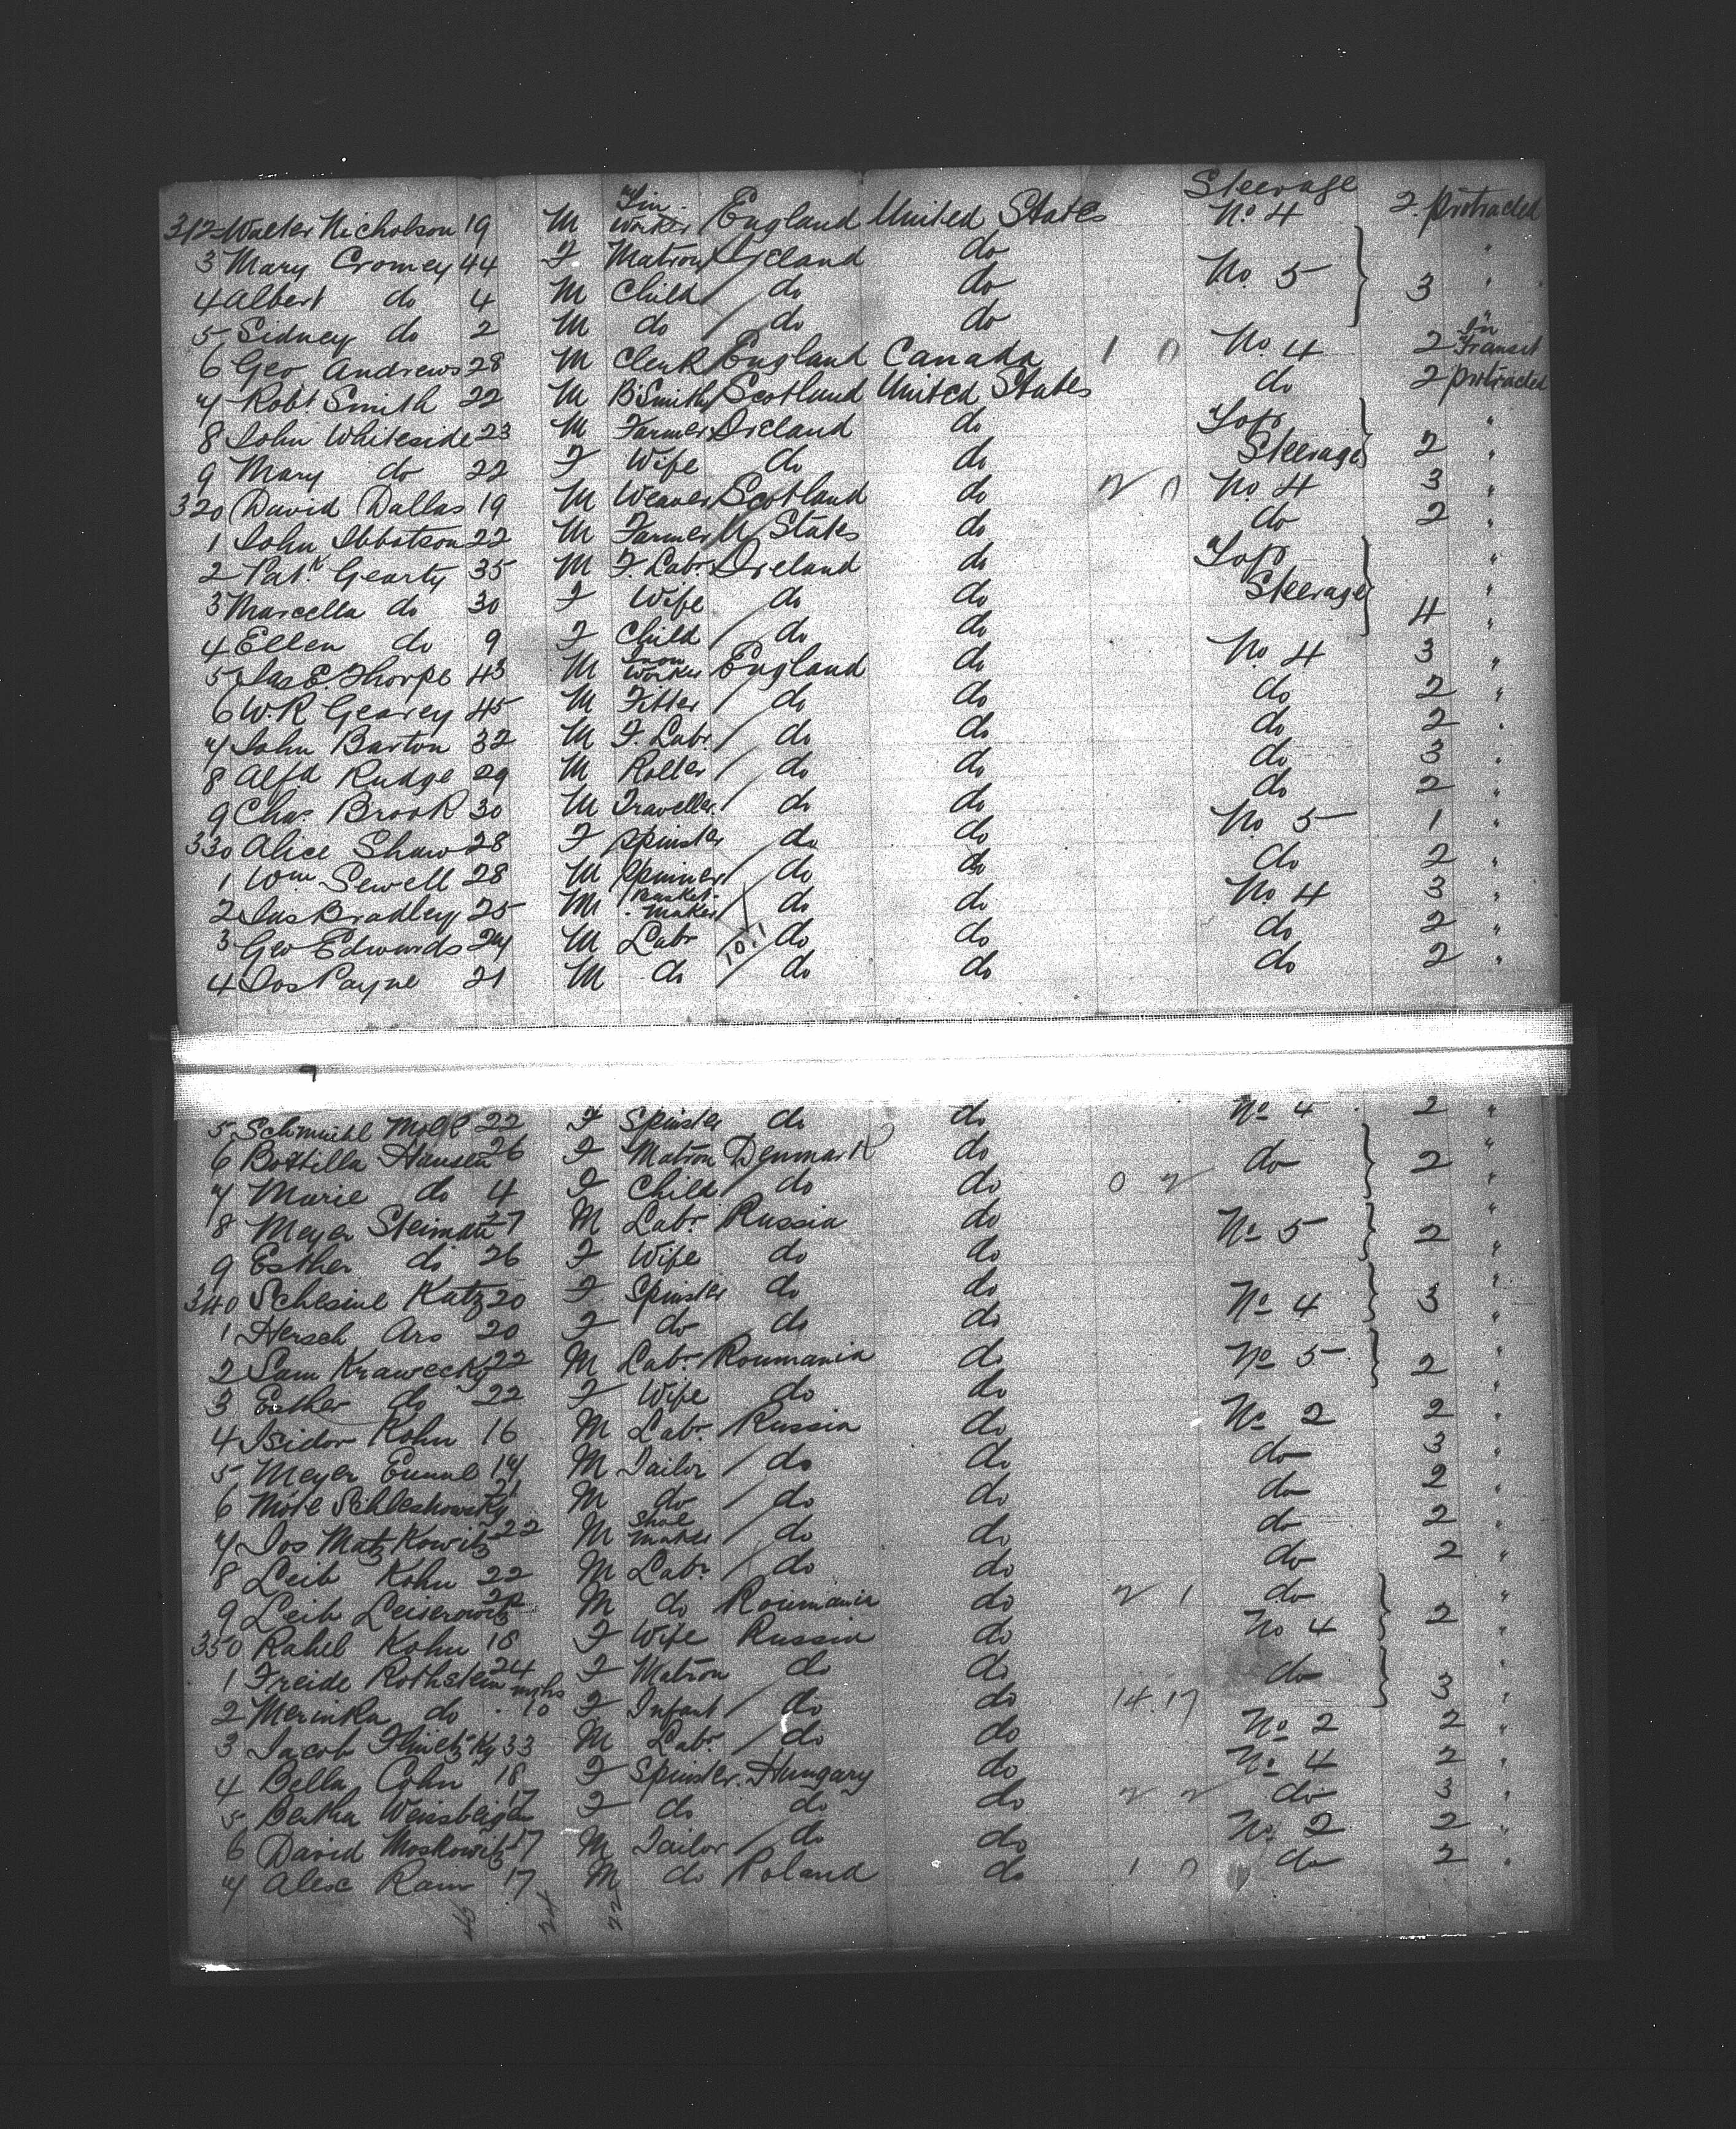 Steerage
312 Walter Nicholson 19 M Tin Worker England United States No. 4 2 protracted
3 Mary Cromey 44 F Matron Ireland do "
4 Albert do 4 M Child do do No. 5 3 "
5 Sidney do 2 M do do do "
6 Geo Andrews 28 M Clerk England Canada 1 0 No. 4 2 In Transit
7 Robt Smith 22 M B'Smith Scotland United States do 2 protracted
8 John Whiteside 23 M Farmer Ireland do "
9 Mary do 22 F Wife do do Steerage 2 "
320 David Dallas 19 M Weaver Scotland do 2 0 No. 4 3 "
1 John Ibbotson 22 M Farmer U States do do 2 "
2 Patk Gearty 35 M F. Labr Ireland do "
3 Marcella do 30 F Wife do do Steerage "
4 Ellen do 9 F Child do do 4 "
5 Jas E. Thorpe 43 M Iron Worker England do No. 4 3 "
6 W.R Gearey 45 M Fitter do do do 2 "
7 John Barton 32 M F. Labr do do do 2 "
8 Alfd Rudge 29 M Roller do do do 3 "
9 Chas. Brook 30 M Traveller do do do 2 "
330 Alice Shaw 28 F Spinster do do No 5 1 "
1 Wm Sewell 28 M Spinner do do do 2 "
2 Jas Bradley 25 M Basket-maker do do No 4 3 "
3 Geo Edwards 24 M Labr do do do 2 "
4 Jos Payne 21 M do 10.1 do do do 2 "
5 Schmuhl 22 F Spinster do do No 4 2 "
6 Bottilla Hansen 26 F Matron Denmark do do 2 "
7 Marie do 4 F Child do do 0 2 "
8 Meyer Steiman 27 M Labr. Russia do No 5 2 "
9 Esther do 26 F Wife do do "
340 Katz 20 F Spinster do do No 4 3 "
1 Hersch Aro 20 F do do do "
2 Sam Krawecky 22 M Labr. Roumania do No 5 2 "
3 Esther do 22 F Wife do do "
4 Isidor Kohn 16 M Labr. Russia do No 2 2 "
5 Meyer M Tailor do do do 3 "
6 21 M do do do do 2 "
7 Jos Matzkowitz 22 M Shoe maker do do do 2 "
8 Leib Kohn 22 M Labr do do do 2 "
9 Leib Leiserowitz M do Roumania do 2 1 do "
350 Rahel Kohn 18 F Wife Russia do No 4 2 "
1 Freide Rothstein 24 F Matron do do do "
2 Merinka do 10 mths F Infant do do 14.17 3 "
3 Jacob 33 M Labr. do do No 2 2 "
4 Bella Cohn 18 F Spinster Hungary do No 4 2 "
5 Bertha 17 F do do do 2 2 do 3 "
6 David Moskowitz 17 M Tailor do do No 2 2 "
7 Alex Ram 17 M do Poland do 1 0 do 2 "
24 22